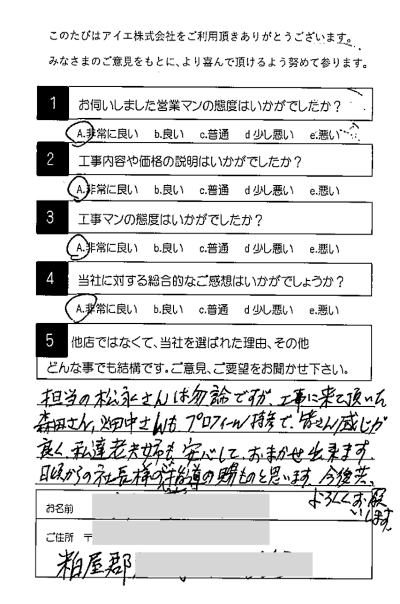 このたびはアイエ株式会社をご利用頂きありがとうございます。
みなさまのご意見をもとに、より喜んで頂けるよう努めて参ります。
1 お伺いしました営業マンの態度はいかがでしたか?
A.非常に良い b.良い c.普通 d 少し悪い e.悪い
2 工事内容や価格の説明はいかがでしたか?
A.非常に良い b.良い c.普通 d 少し悪い e.悪い
3 工事マンの態度はいかがでしたか?
A.非常に良い b.良い c.普通 d 少し悪い e.悪い
4 当社に対する総合的なご感想はいかがでしょうか?
A.非常に良い b.良い c.普通 d 少し悪い e.悪い
5 他店ではなくて、当社を選ばれた理由、その他
どんな事でも結構です。ご意見、ご要望をお聞かせ下さい。
担当の松永さんは勿論ですが、工事に来て頂いた
森田さん、畑中さんもプロフィール持参で、皆さん感じが
良く、私達老夫婦も安心して、おまかせ出来ます。
日頃からの社長様の指導の賜ものと思います。今後共、
よろしくお願
いします。
お名前
ご住所 〒
粕屋郡